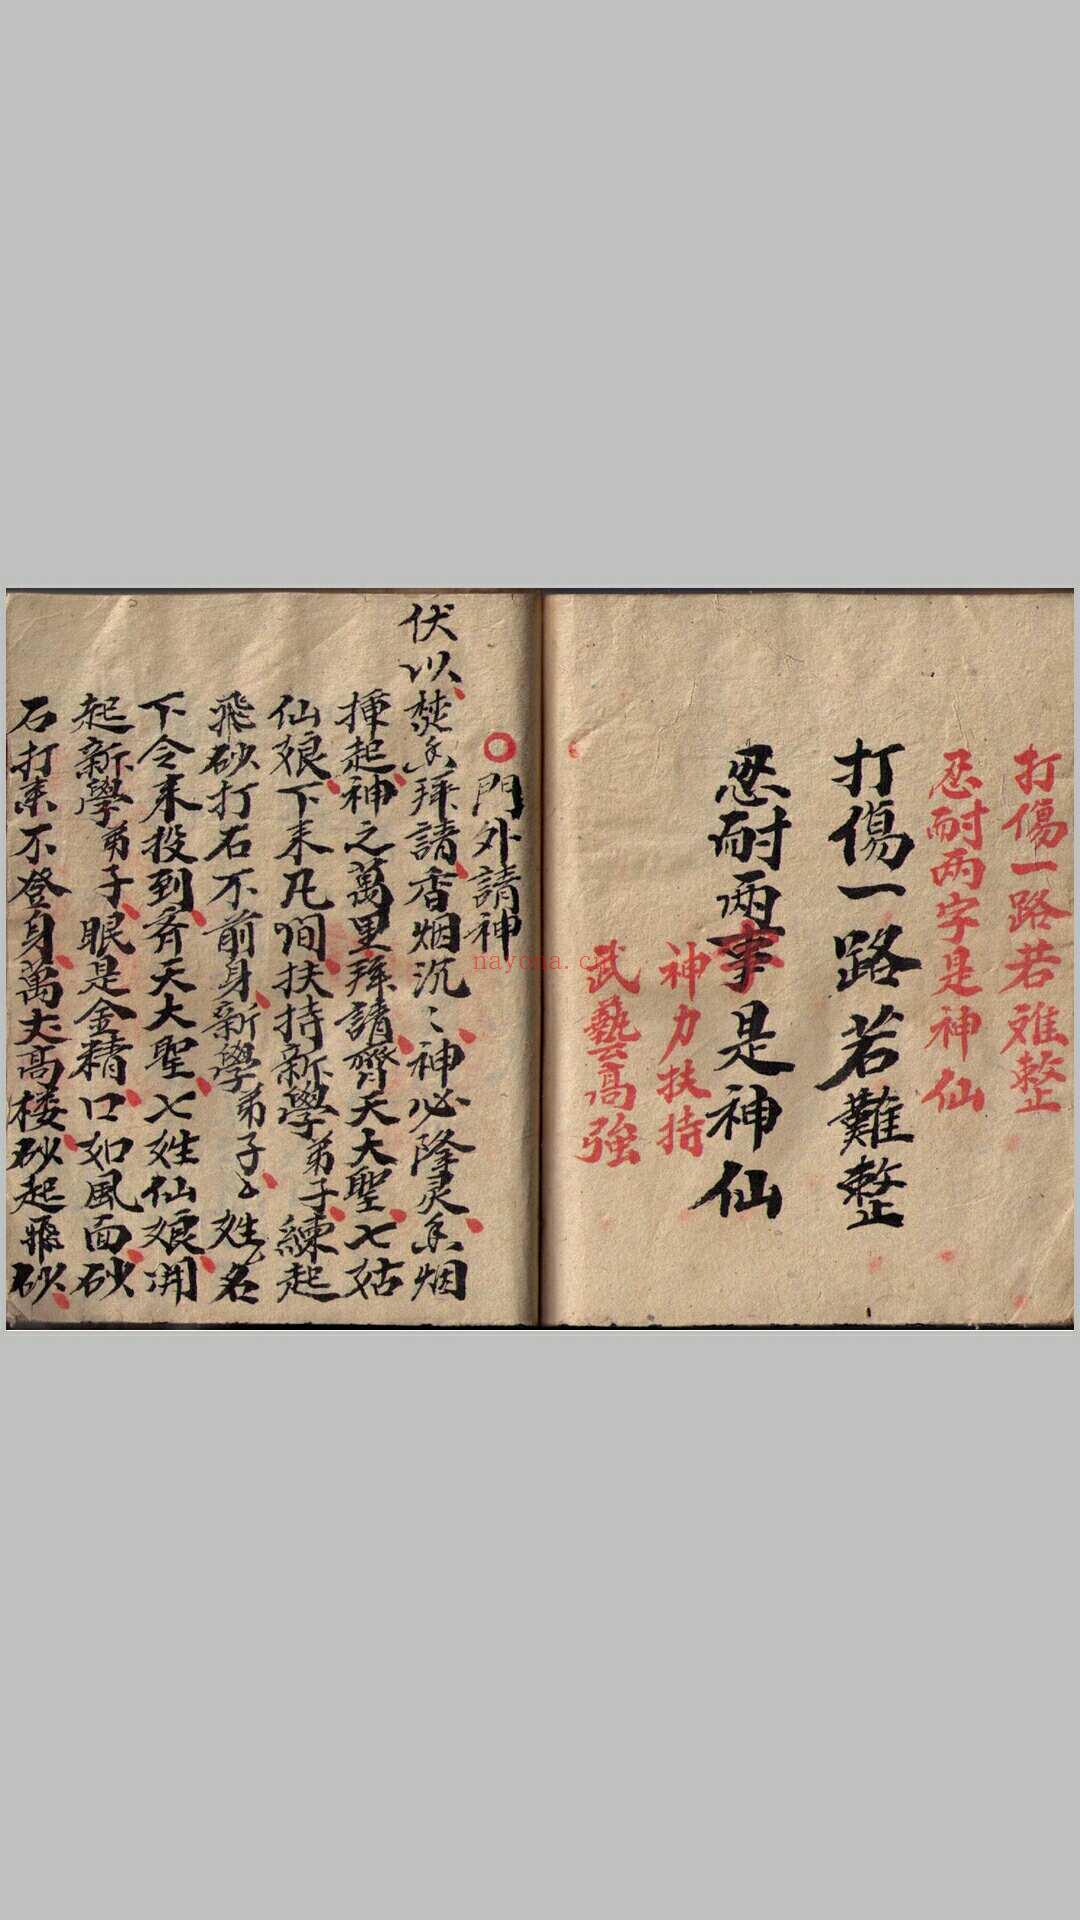 打傷一路若难整
忍耐两字是神仙
打傷一路若難整
忍耐两事是神仙
神力扶持
武藝高強
○門外請神
伏以焚香拜請香烟沉〻神必降灵香烟
捶起神之萬里拜請齊天大聖七姑
仙娘下来凡间扶持新學弟子練起
飛砂打石不前身新學弟子〻姓名
下令来投到齐天大聖七姓仙娘開
起新學弟子眼是金精口如風面砂
石打来不登身萬丈高楼砂起飛砂
nayona.cn